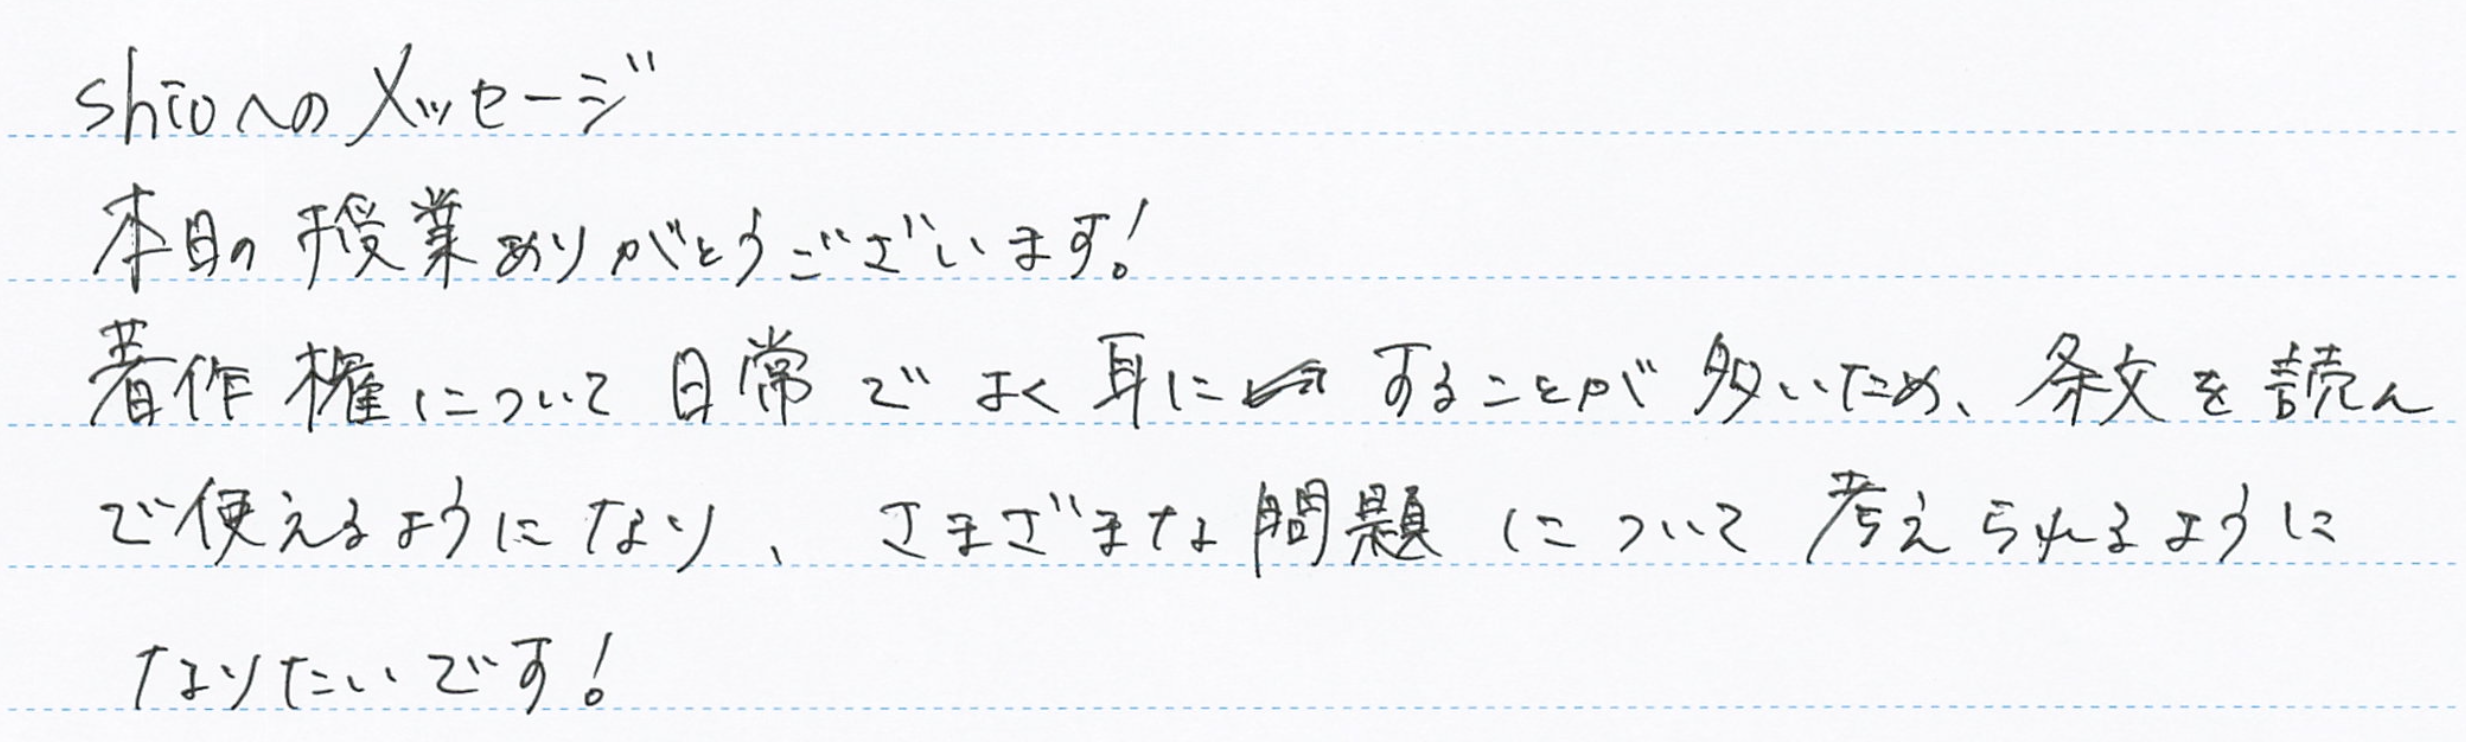 shioへのメッセージ
本日の授業ありがとうございます!
著作権について日常でよく耳にすることが多いため、条文を読ん
で使えるようになり、さまざまな問題について考えられるように
なりたいです!